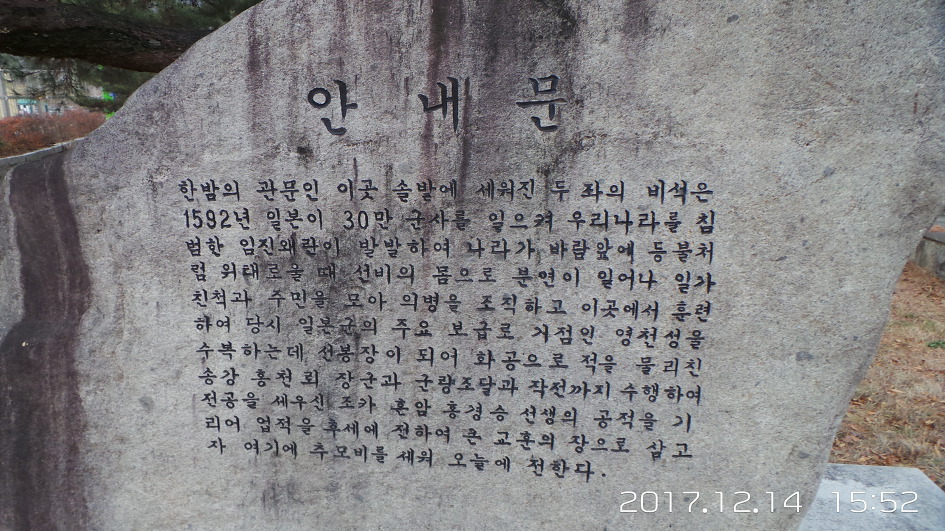 안내문
한밤의 관문인 이곳 솔밭에 세워진 두 좌의 비석은
1592년 일본이 30만 군사를 일으켜 우리나라를 침
범한 임진왜란이 발발하여 나라가 바람앞에 등불처
럼 위태로울 때 선비의 몸으로 분연이 일어나 일가
친척과 주민을 모아 의병을 조직하고 이곳에서 훈련
하여 당시 일본군의 주요 보급로 거점인 영천성을
수복하는데 선봉장이 되어 화공으로 적을 물리친
송강 홍천뢰 장군과 군량조달과 작전까지 수행하여
전공을 세우신 조카 훈암 홍경승 선생의 공적을 기
리어 업적을 후세에 전하여 큰 교훈의 장으로 삼고
자 여기에 추모비를 세워 오늘에 전한다.
2017.12.14 15:52